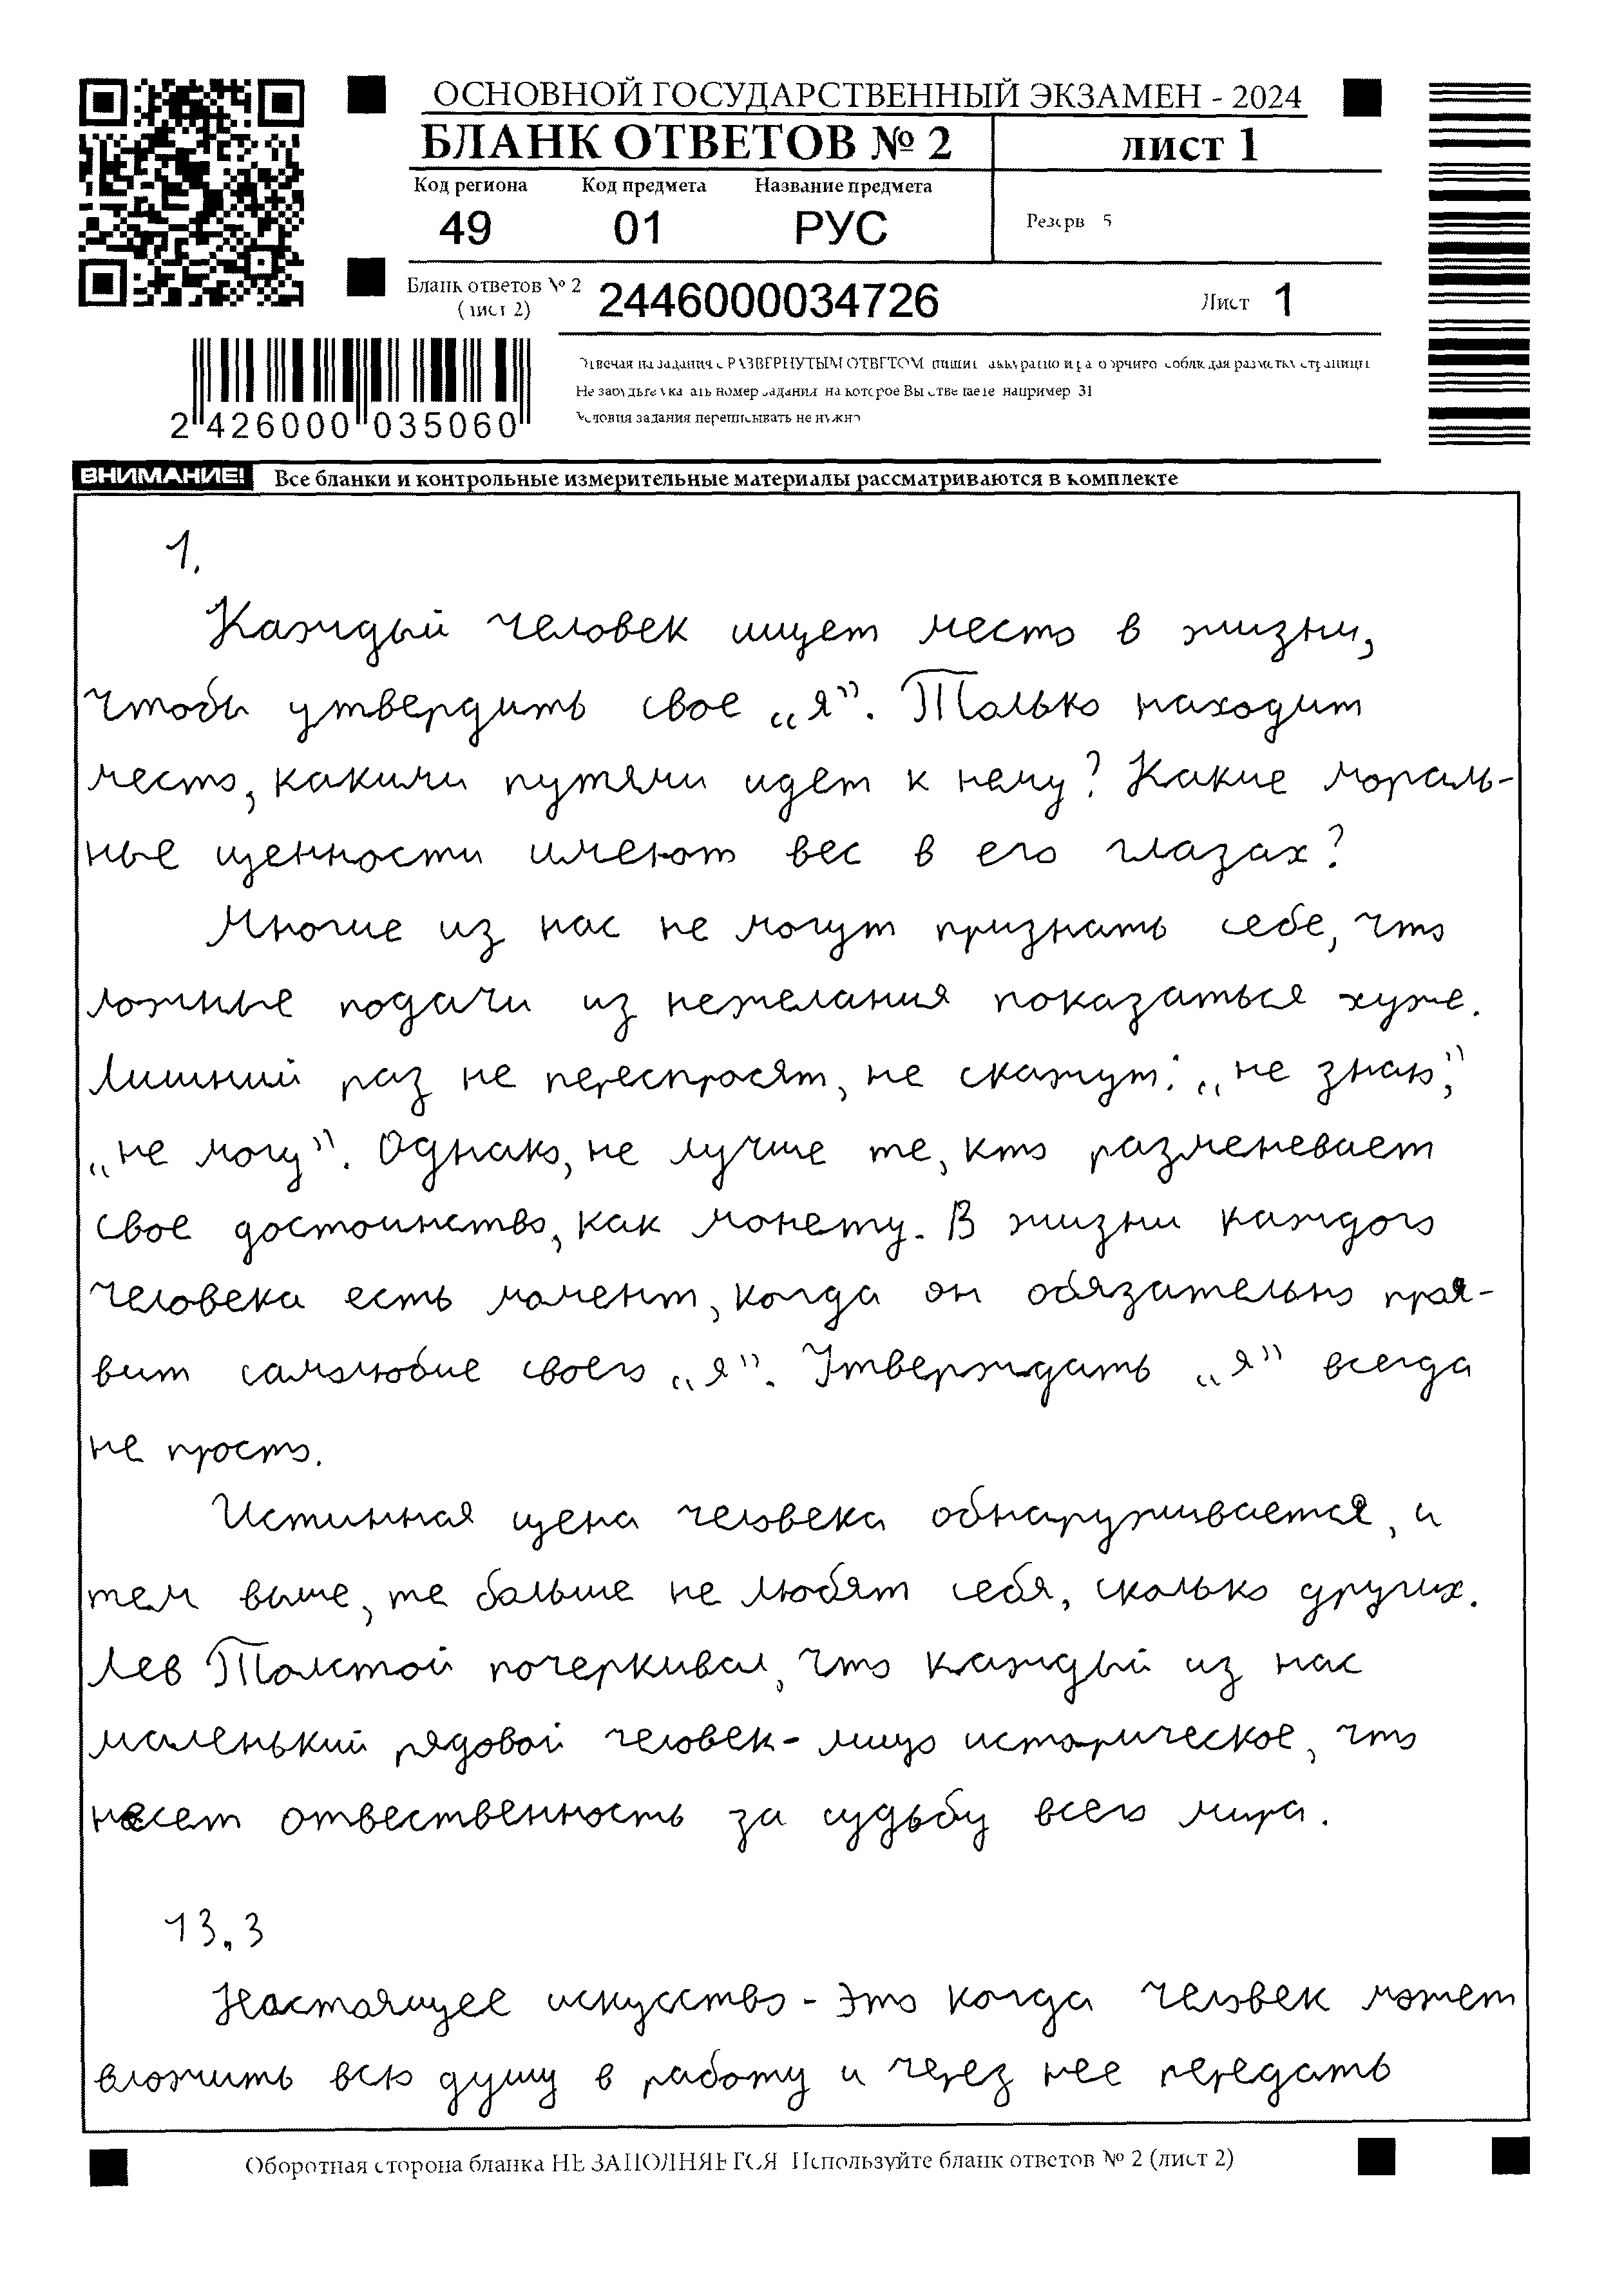 ОСНОВНОЙ ГОСУДАРСТВЕННЫЙ ЭКЗАМЕН - 2024
БЛАНК ОТВЕТОВ № 2
лист 1
Код региона Код предмета Название предмета
49 01 РУС
Резерв 5
Бланк ответов № 2
(лист 2)
2446000034726
Лист 1
Отвечая на задания с РАЗВЕРНУТЫМ ОТВЕТОМ, пишите аккуратно и разборчиво, соблюдая разметку страницы
Не забудьте указать номер задания, на которое Вы отвечаете, например 31
Условия задания переписывать не нужно
2 426000 035060
ВНИМАНИЕ! Все бланки и контрольные измерительные материалы рассматриваются в комплекте
1.
Каждый человек ищет место в жизни,
чтобы утвердить свое „я”. Только находит
место, какими путями идет к нему? Какие мораль-
ные ценности имеют вес в его глазах?
Многие из нас не могут признать себе, что
ложные подачи из нежелания показаться хуже.
Лишний раз не переспросят, не скажут: „не знаю”,
„не могу”. Однако, не лучше те, кто разменевает
свое достоинство, как монету. В жизни каждого
человека есть момент, когда он обязательно проя-
вит самолюбие своего „я”. Утверждать „я” всегда
не просто.
Истинная цена человека обнаруживается, и
тем выше, те больше не любят себя, сколько других.
Лев Толстой почеркивал, что каждый из нас
маленький рядовой человек - лицо историческое, что
несет отвественность за судьбу всего мира.
13.3
Настоящее искусство - это когда человек может
вложить всю душу в работу и через нее передать
Оборотная сторона бланка НЕ ЗАПОЛНЯЕТСЯ Используйте бланк ответов № 2 (лист 2)